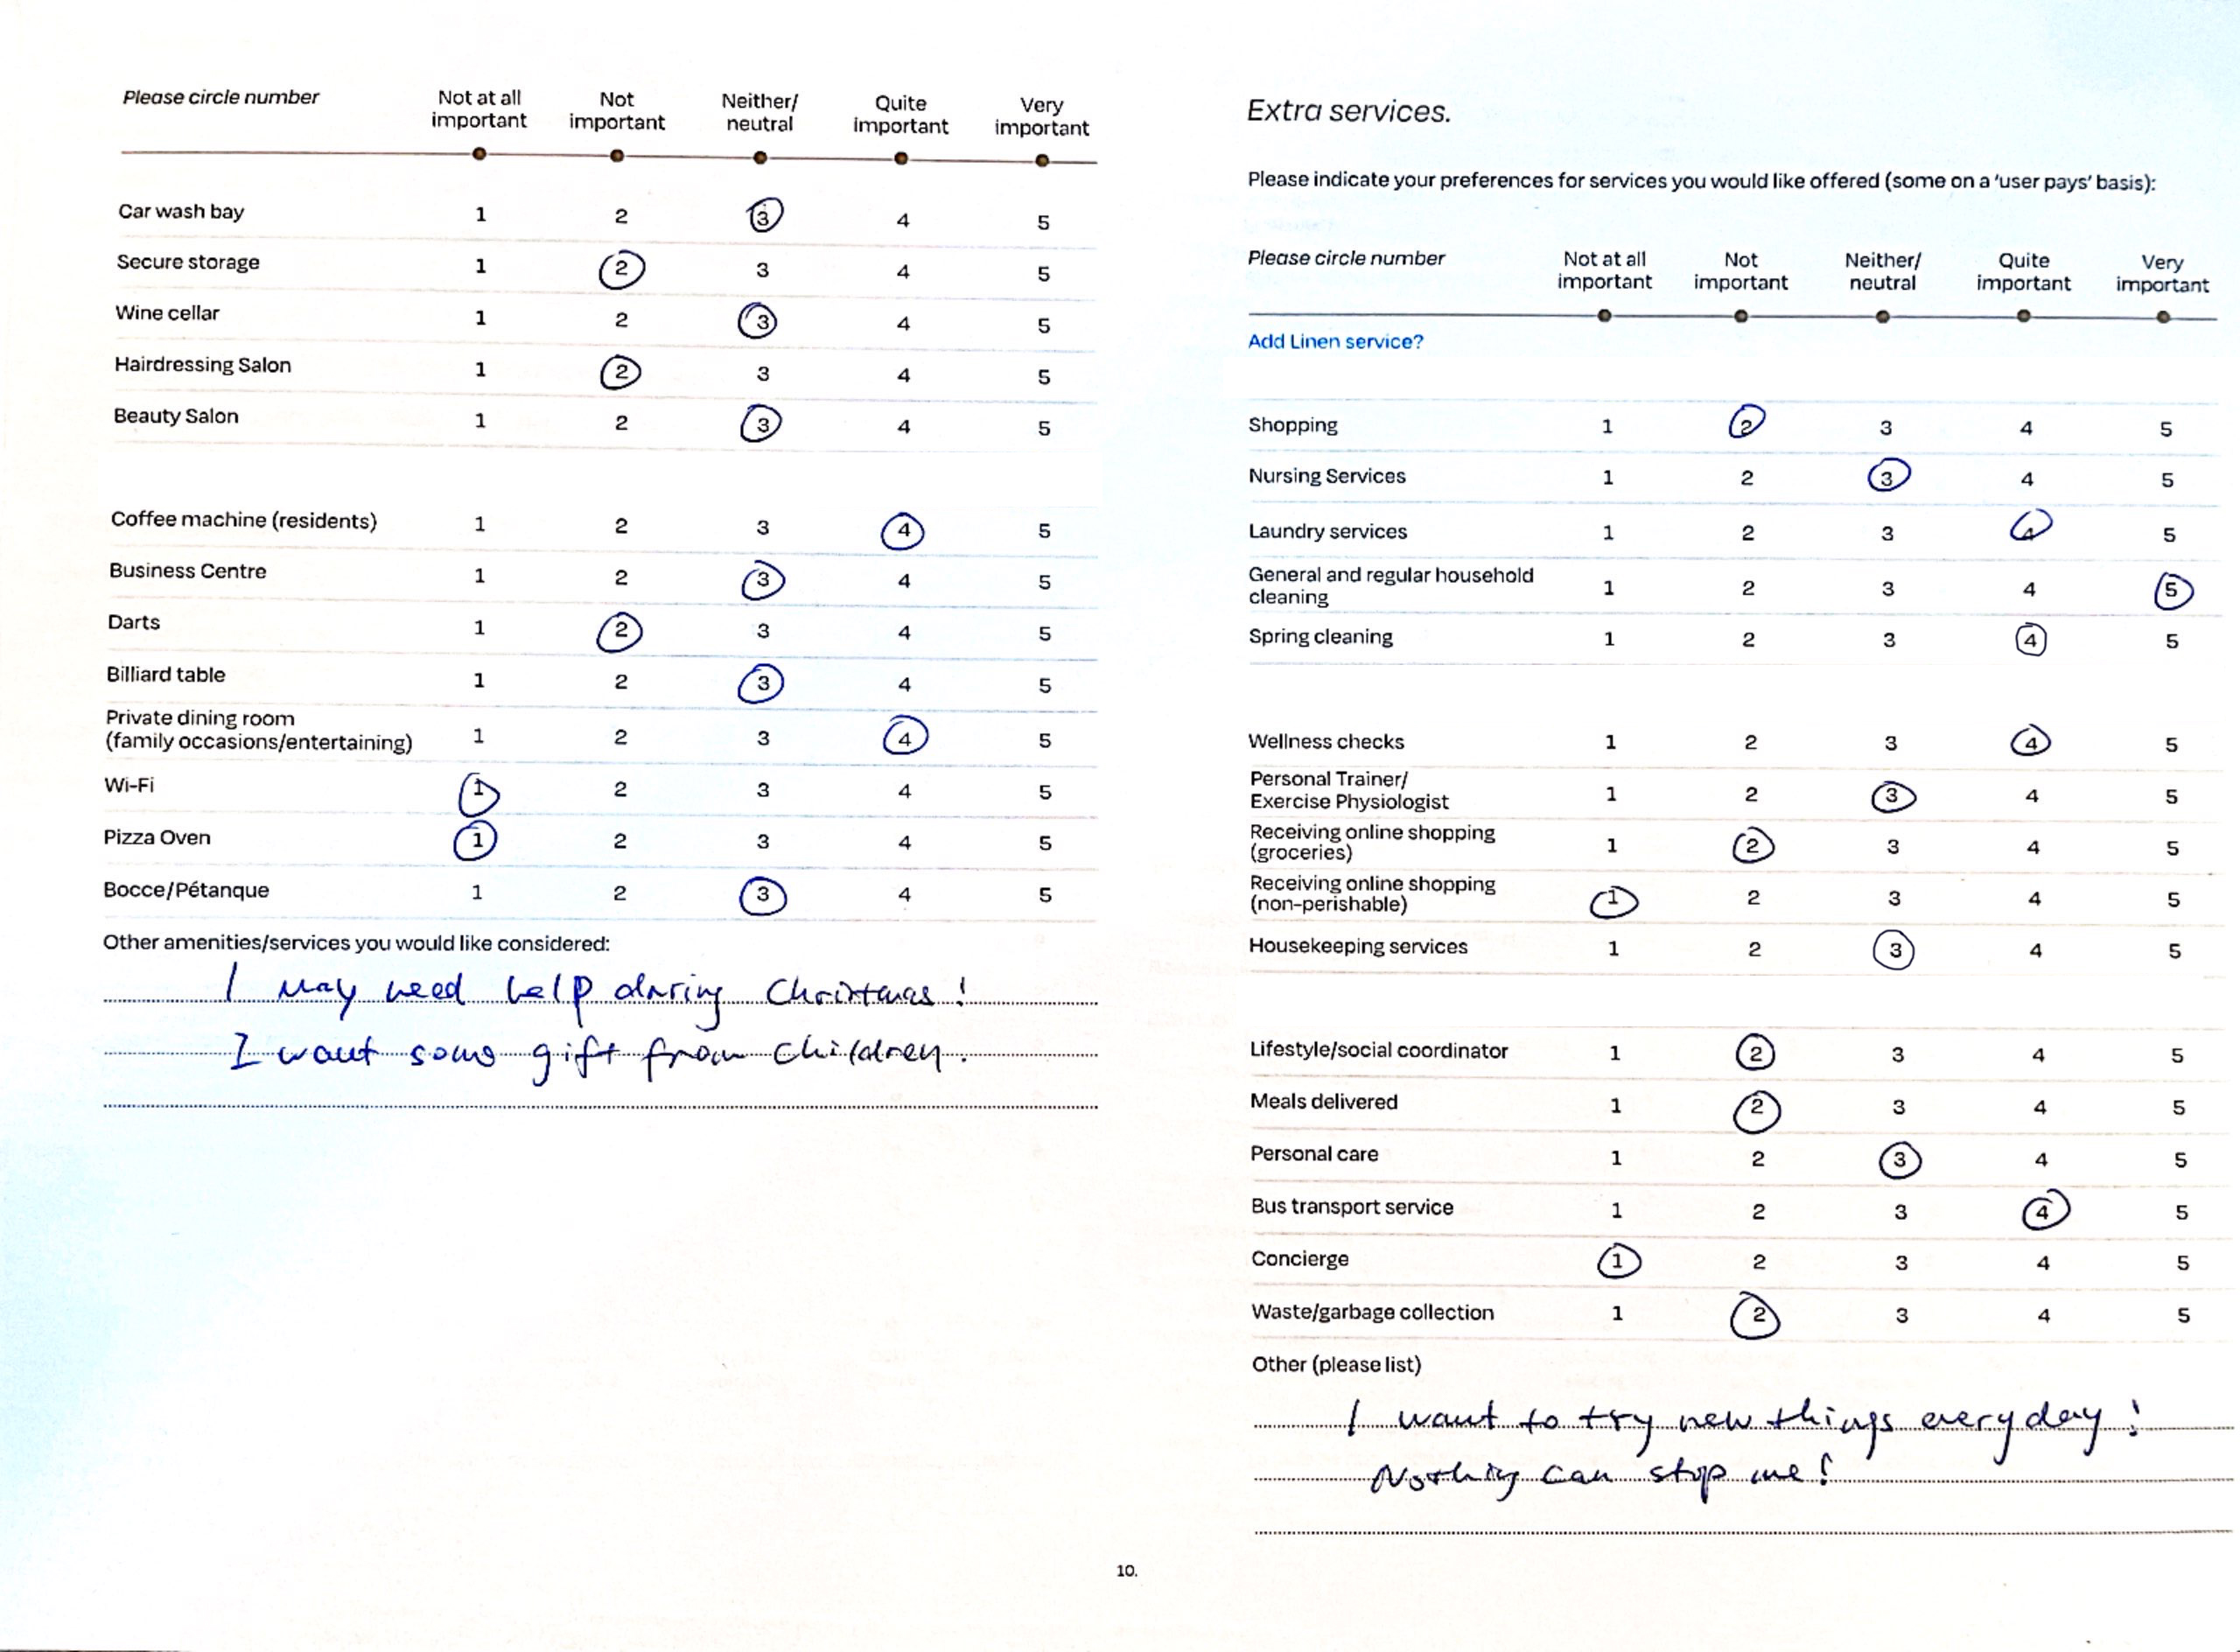 Please circle number Not at all important Not important Neither/ neutral Quite important Very important
Car wash bay 1 2 3 4 5
Secure storage 1 2 3 4 5
Wine cellar 1 2 3 4 5
Hairdressing Salon 1 2 3 4 5
Beauty Salon 1 2 3 4 5
Coffee machine (residents) 1 2 3 4 5
Business Centre 1 2 3 4 5
Darts 1 2 3 4 5
Billiard table 1 2 3 4 5
Private dining room
(family occasions/entertaining) 1 2 3 4 5
Wi-Fi 1 2 3 4 5
Pizza Oven 1 2 3 4 5
Bocce/Pétanque 1 2 3 4 5
Other amenities/services you would like considered:
I may need help during Christmas!
I want some gift from children.
Extra services.
Please indicate your preferences for services you would like offered (some on a 'user pays' basis):
Please circle number Not at all important Not important Neither/ neutral Quite important Very important
Add Linen service?
Shopping 1 2 3 4 5
Nursing Services 1 2 3 4 5
Laundry services 1 2 3 4 5
General and regular household
cleaning 1 2 3 4 5
Spring cleaning 1 2 3 4 5
Wellness checks 1 2 3 4 5
Personal Trainer/
Exercise Physiologist 1 2 3 4 5
Receiving online shopping
(groceries) 1 2 3 4 5
Receiving online shopping
(non-perishable) 1 2 3 4 5
Housekeeping services 1 2 3 4 5
Lifestyle/social coordinator 1 2 3 4 5
Meals delivered 1 2 3 4 5
Personal care 1 2 3 4 5
Bus transport service 1 2 3 4 5
Concierge 1 2 3 4 5
Waste/garbage collection 1 2 3 4 5
Other (please list)
I want to try new things everyday!
Nothing can stop me!
10.